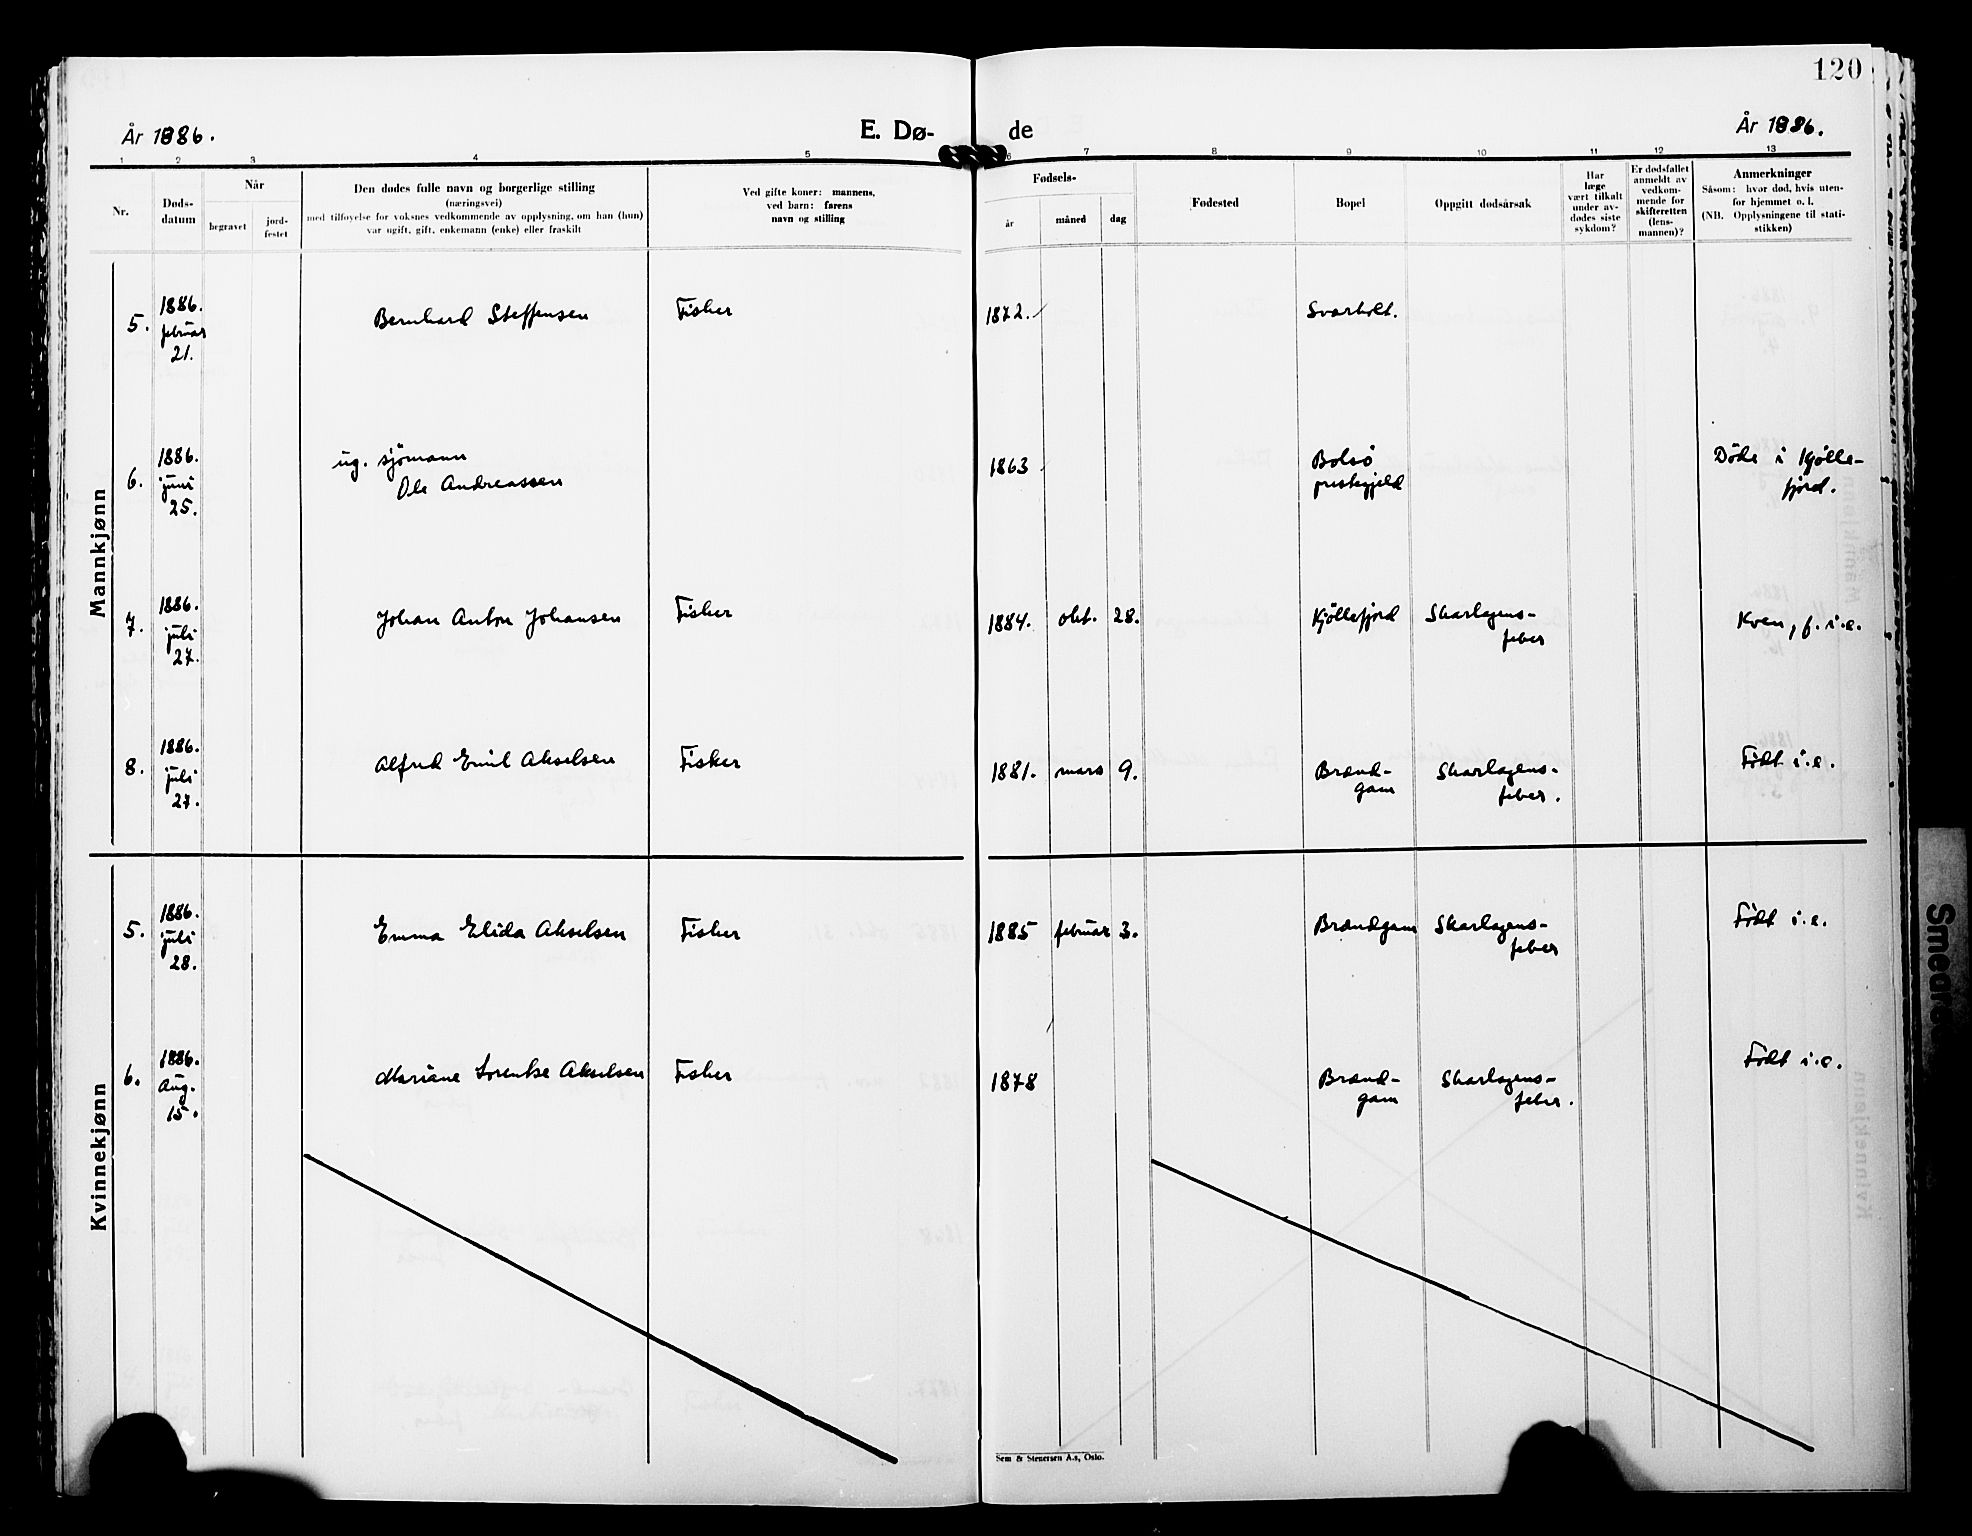 120
År 1886.
E. Dø-
de
År 1886.
1 2 3 4 5 6 7 8 9 10 11 12 13
Nr.
Døds-
datum
Når
begravet
jord-
festet
Den dødes fulle navn og borgerlige stilling
(næringsvei)
med tilføyelse for voksnes vedkommende av opplysning, om han (hun)
var ugift, gift, enkemann (enke) eller fraskilt
Ved gifte koner: mannens,
ved barn: farens
navn og stilling
Fødsels-
år
måned
dag
Fødested
Bopel
Oppgitt dødsårsak
Har
læge
vært tilkalt
under av-
dødes siste
sykdom?
Er dødsfallet
anmeldt av
vedkom-
mende for
skifteretten
(lens-
mannen)?
Anmerkninger
Såsom: hvor død, hvis uten-
for hjemmet o. l.
(NB. Opplysningene til stati-
stikken)
Mannkjønn
5.
1886.
februar
21.
Bernhard Steffensen
Fisker
1872.
Svarholt.
6.
1886.
juni
25.
ug. sjömann
Ole Andreassen
1863
Bolsö
prestegjeld
Döde i Kjölle-
fjord.
7.
1886.
juli
27.
Johan Anton Johansen
Fisker
1884. okt. 28.
Kjöllefjord
Skarlagens-
feber
Kven, f. i.e.
8.
1886.
juli
27.
Alfred Emil Akselsen
Fisker
1881. mars 9.
Brand-
gam
Skarlagens-
feber.
Födt i.e.
Kvinnekjønn
5.
1886.
juli
28.
Emma Elida Akselsen
Fisker
1885 februar 3.
Brandgam
Skarlagens-
feber
Födt i.e.
6.
1886.
Aug.
15.
Mariane Lorentse Akselsen
Fisker
1878
Brand-
gam
Skarlagens-
feber.
Födt i.e.
Sem & Stenersen A.s, Oslo.